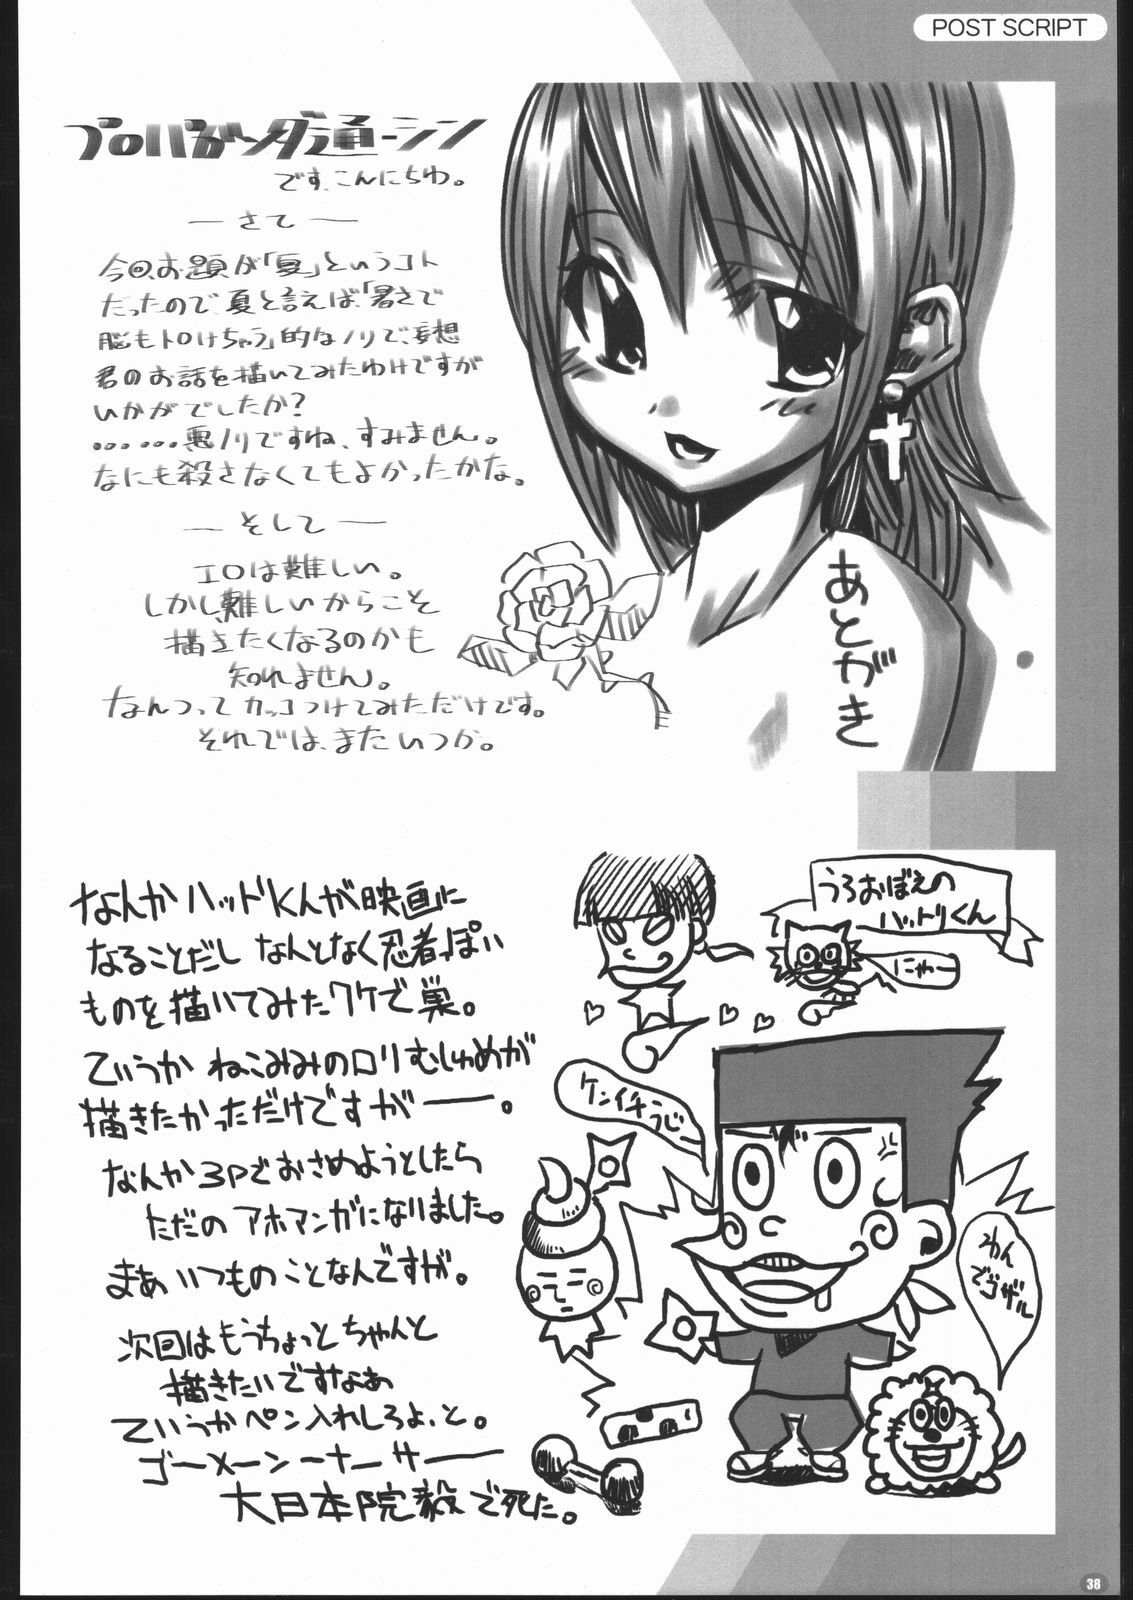 POST SCRIPT
プロパガンダ通ーシン
です、こんにちわ。
ーさてー
今回、お題が「夏」というコト
だったので、夏と言えば、「暑さで
脳もトロけちゃう」的なノリで、妄想
君のお話を描いてみたわけですが
いかがでしたか?
………悪ノリですね、すみません。
なにも殺さなくてもよかったかな。
ーそしてー
エロは難しい。
しかし、難しいからこそ
描きたくなるのかも
知れません。
なんつってカッコつけてみただけです。
それでは、またいつか。
あとがき
なんかハットリくんが映画に
なることだし なんとなく忍者っぽい
ものを描いてみたワケで巣。
ていうか ねこみみのロリむしゅめが
描きたかっただけですがーー。
なんか3Pでおさめようとしたら
ただの アホマンガになりました。
まぁ いつものことなんですが。
次回はもうちょっと ちゃんと
描きたいですなぁ
ていうかペン入れしろよ、と。
ゴーメーンーナーサーー
大日本院毅で死た。
うろおぼえの
ハットリくん
にゃー
ケンイチうじ
わん
でゴザル
38